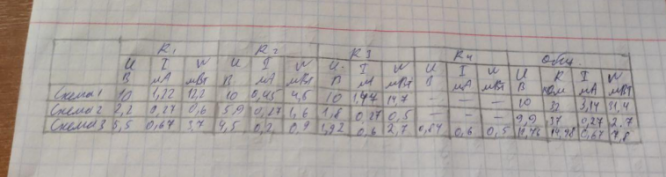 R1 R2 R3 R4 Общ.
U I W U I W U I W U I W U R I W
В мА мВт В мА мВт В м мВт В мА мВт В Ком мА мВт
Схема 1 10 1,22 12,2 10 0,45 4,5 10 1,47 14,7 — — — 10 32 3,14 31,4
Схема 2 2,2 0,27 0,6 5,9 0,27 1,6 1,8 0,27 0,5 — — — 9,9 37 0,27 2,7
Схема 3 5,5 0,67 3,7 4,5 0,2 0,9 0,6 2,7 0,6 0,5 0,67 7,8